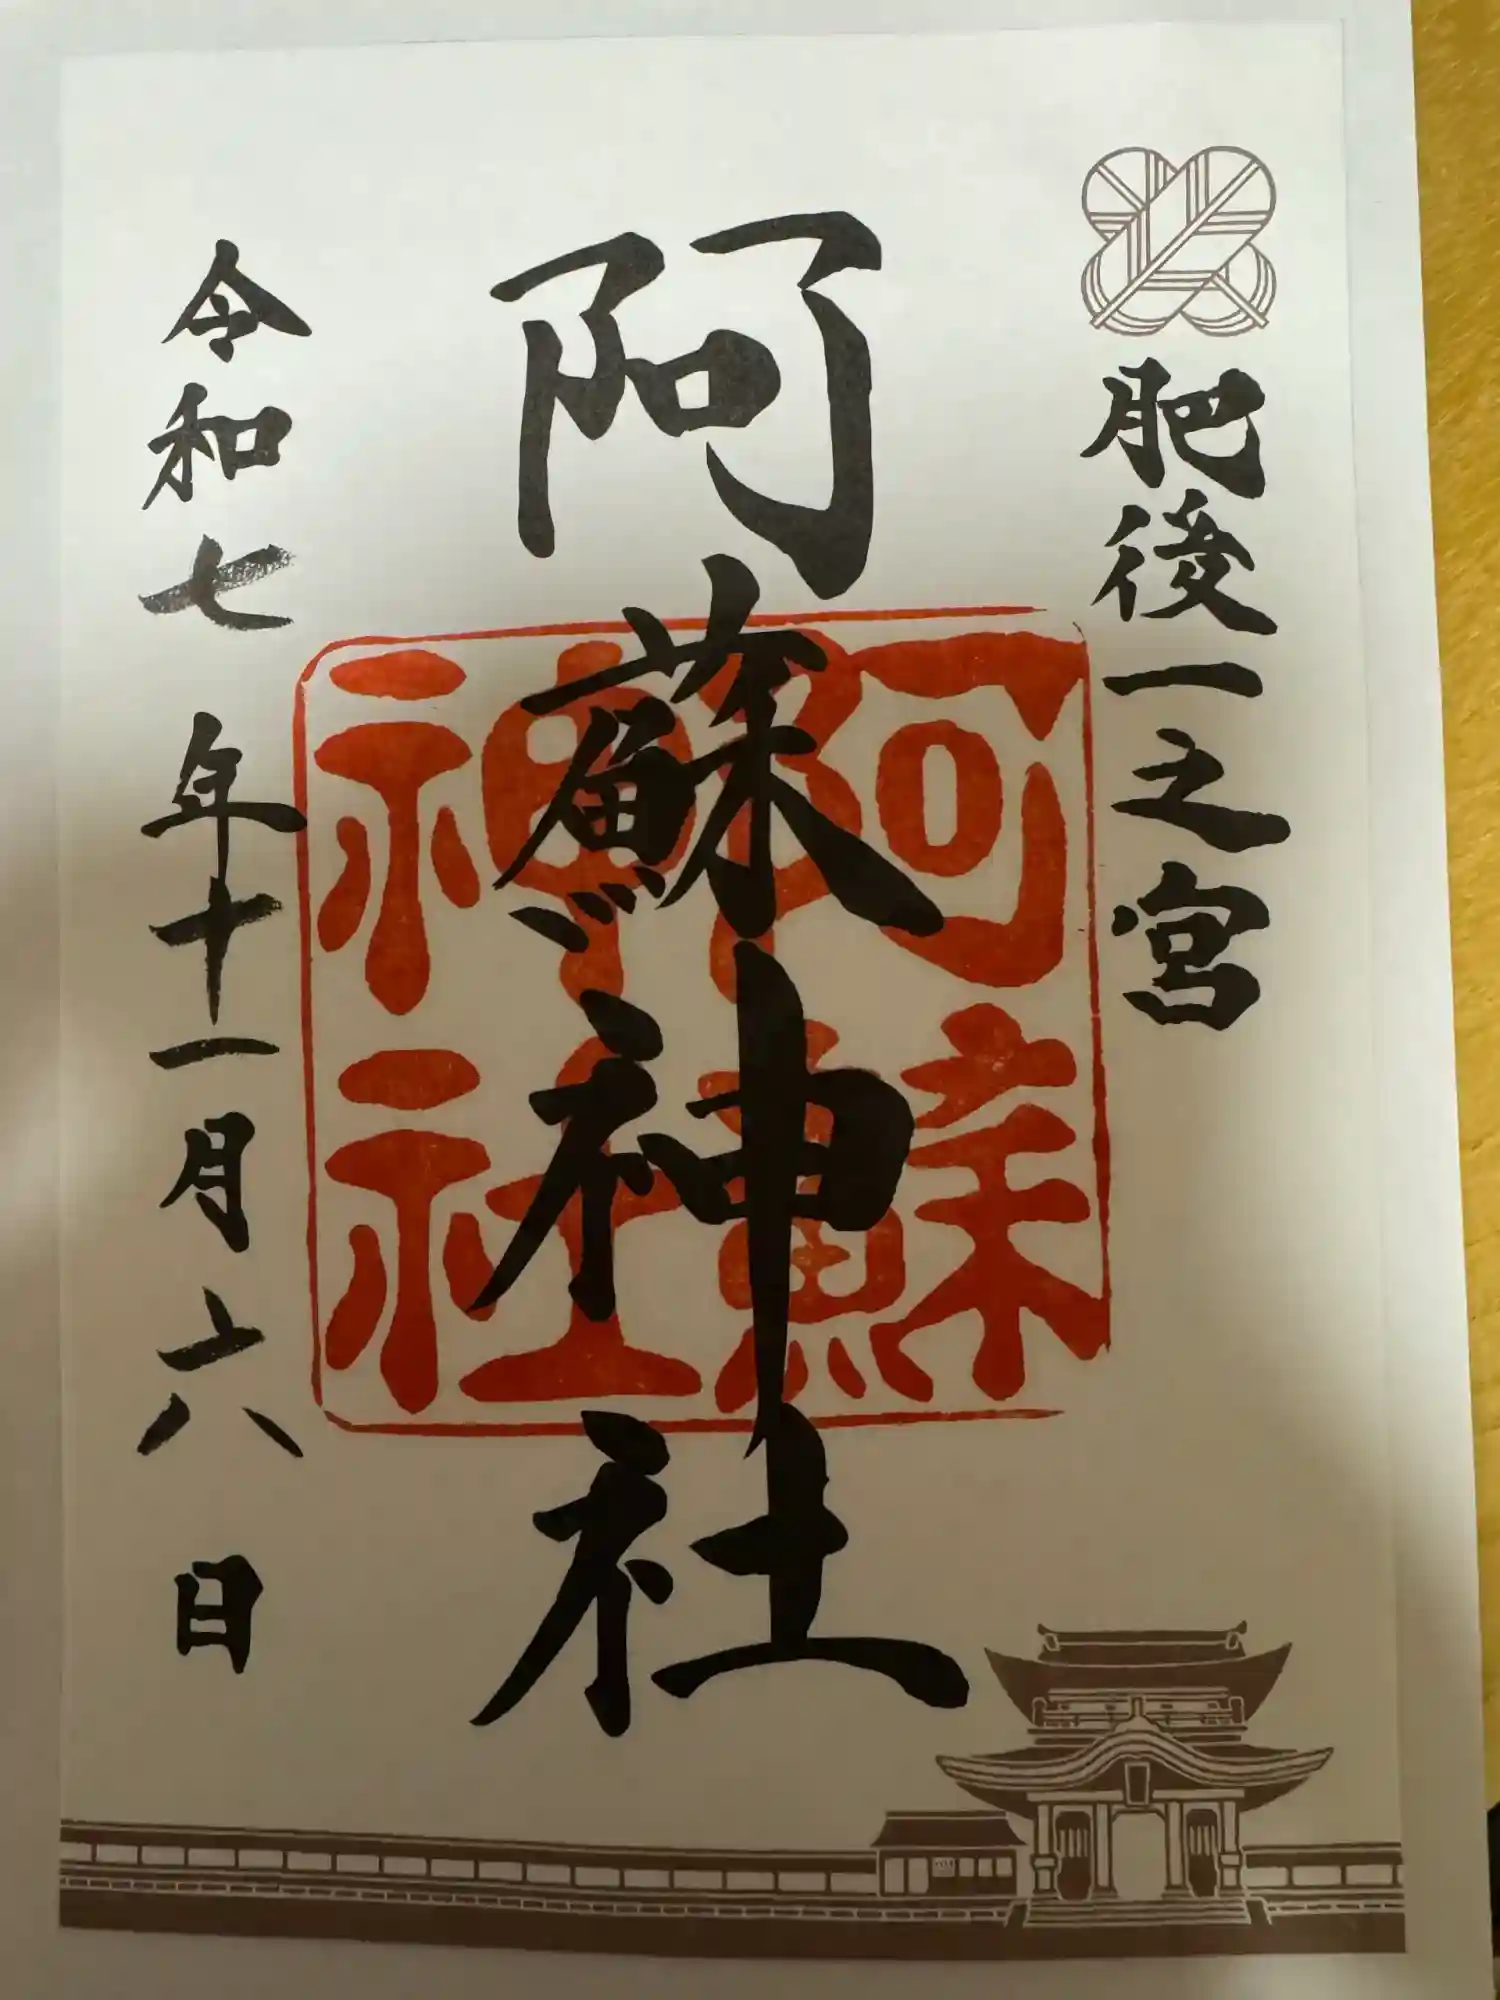 肥後一之宮
阿蘇神社
阿蘇神社
令和七年十一月六日